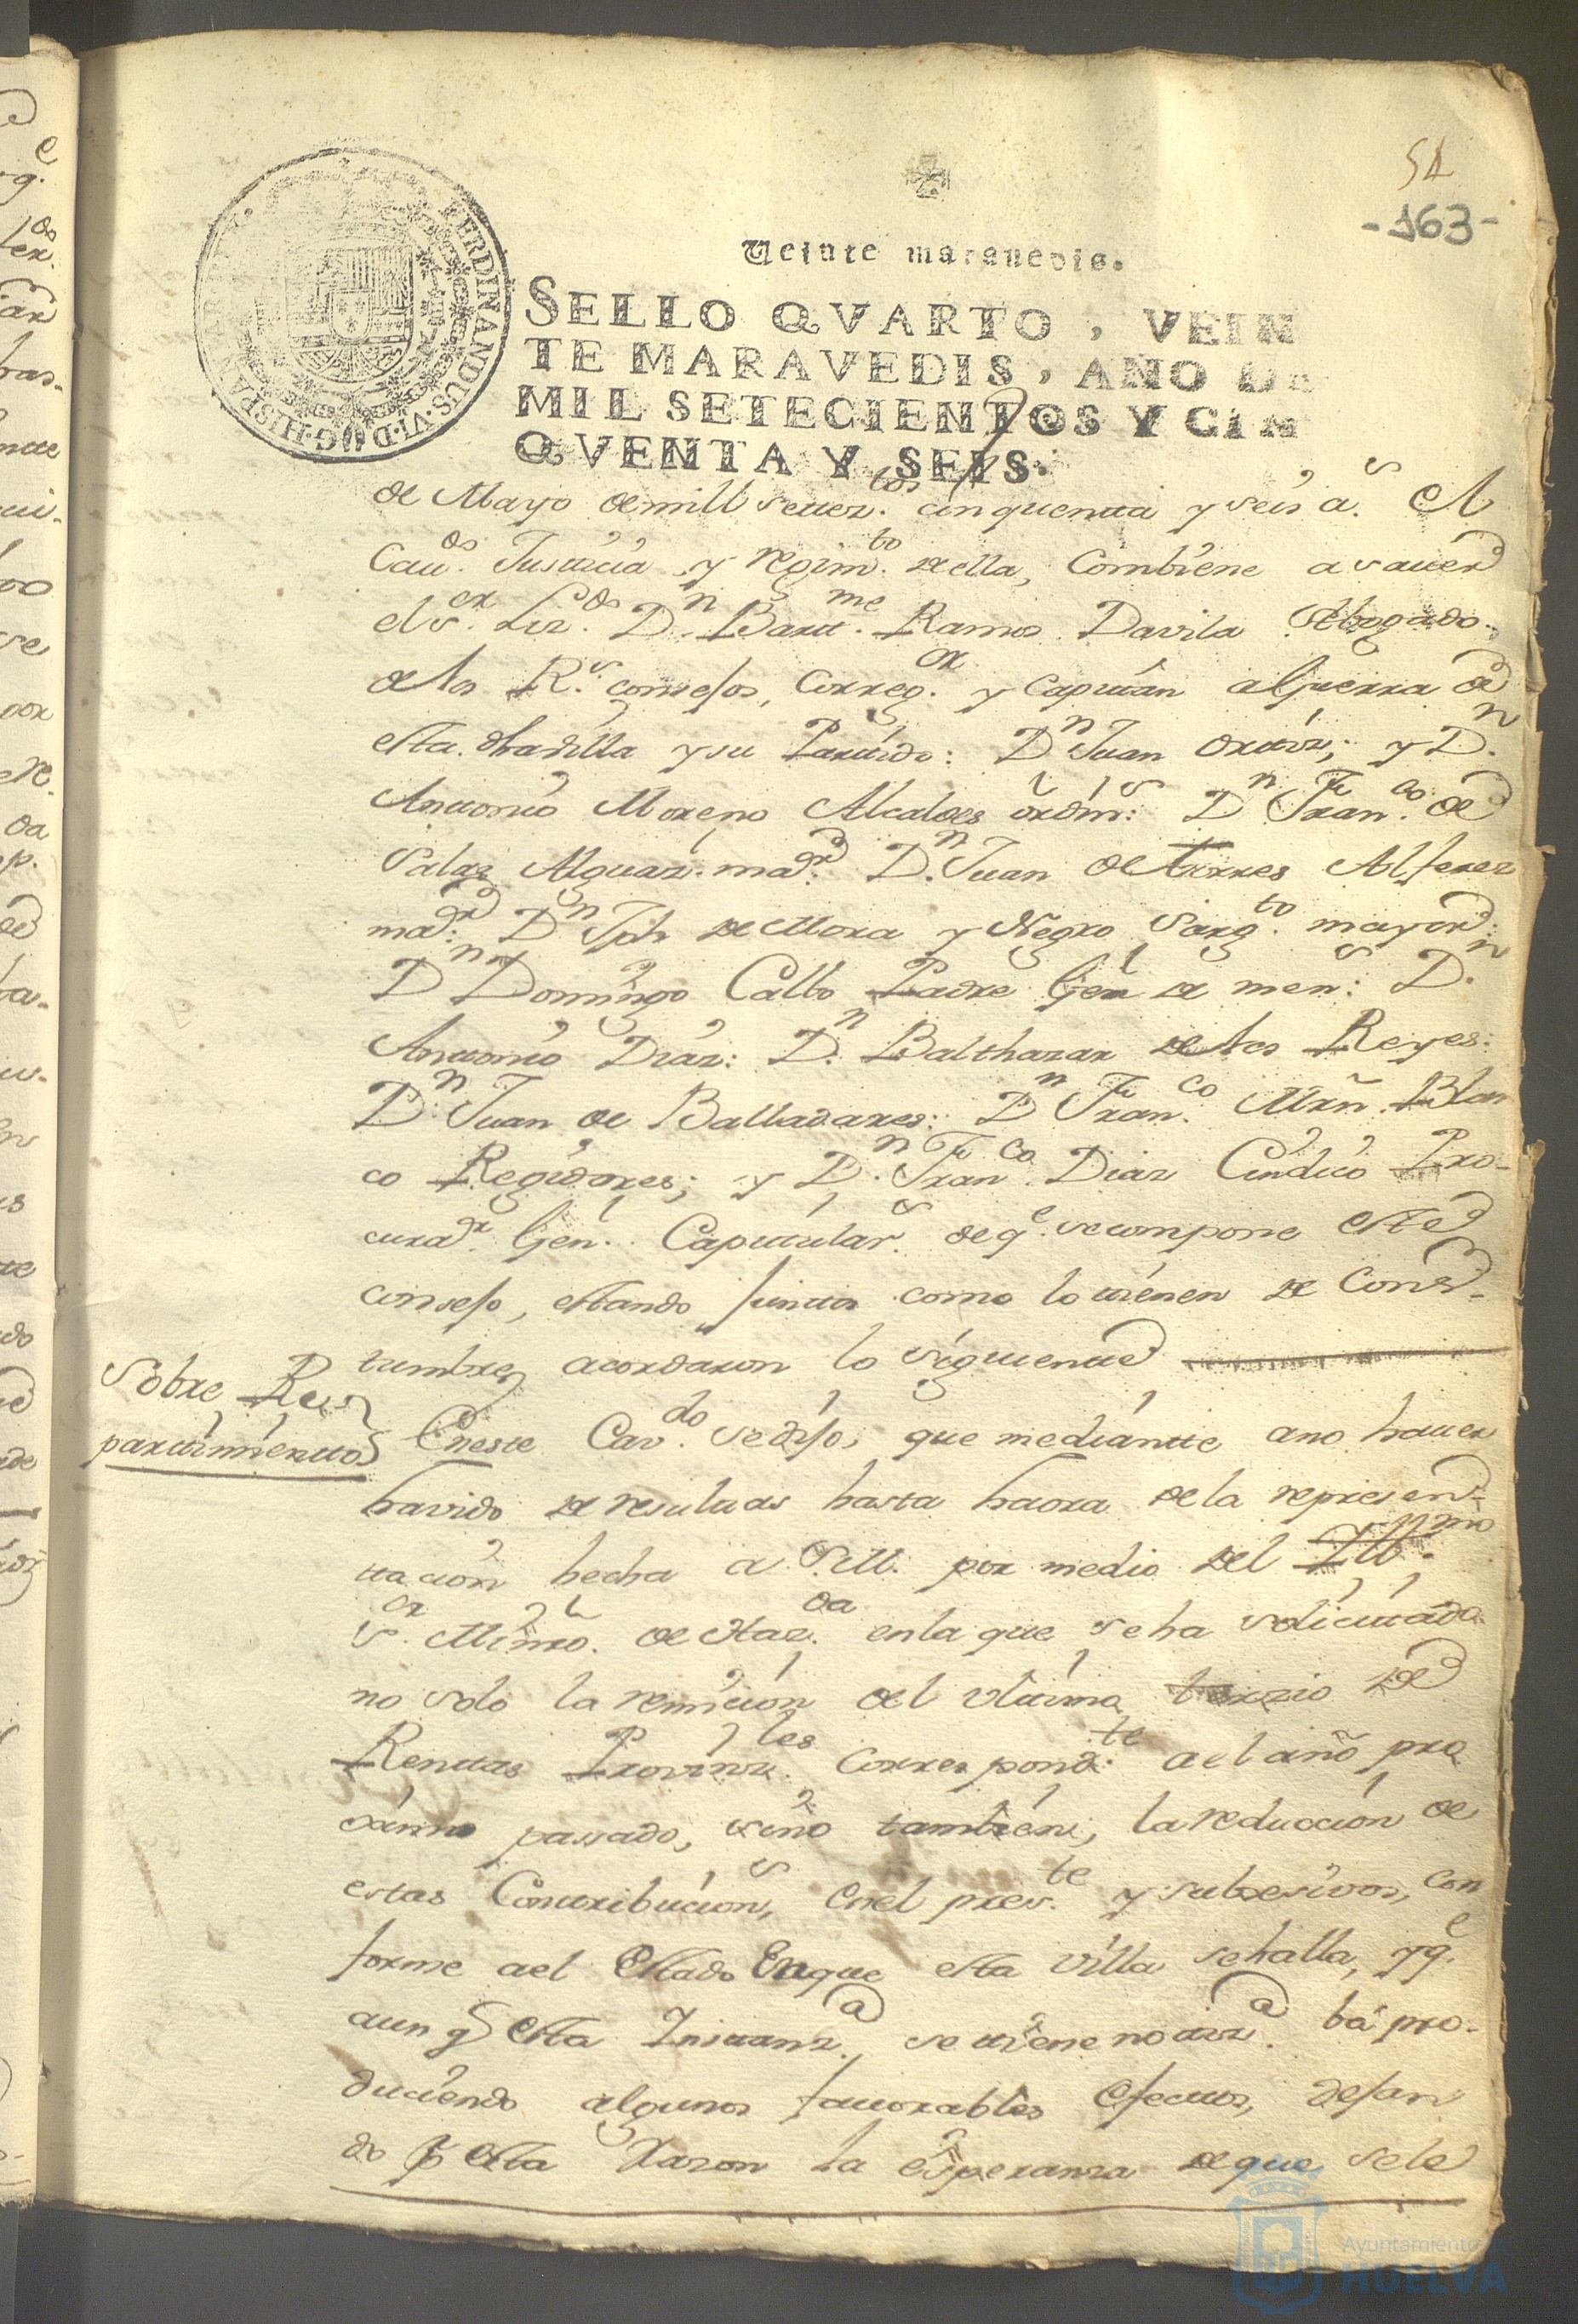 51
-163-
Veinte maravedis.
SELLO QVARTO, VEIN
TE MARAVEDIS, AÑO DE
MIL SETECIENTOS Y CIN
QVENTA Y SEIS.
FERDINANDUS·VI·D·G·HISPANIAR
de Mayo de mill settez.tos cinquentta y seis a.s El
Cau.do Justticia y regim.to de ella, Combiene a sauer
el s.or Liz.do D.n Bartt.me Ramos Davila Abogado
de los R.s consejos, Correg.or y Capittan a Guerra de
esta dha villa y su Parttido: D.n Juan Orttiz; y D.n
Anttonio Moreno Alcaldes ordin.s: D.n Fran.co de
Salaz Alguaz. ma.or D.n Juan de torres Alferez
ma.or: D.n Jph de Mora y Negro Sarg.to mayor:
D.n Domingo Calbo Padre Gen.l de men.s: D.n
Anttonio Diaz: D.n Balthazar de los Reyes:
D.n Juan de Balladares: D.n Fran.co Mrn. Blan
co Regidores; y D.n Fran.co Diaz Cindico Pro-
curad.r Gen.l Capittular.s de q.e se compone este
consejo, estando junttos como lo tienen de Cons-
tumbre, acordaron lo siguientte
Sobre Re-
parttimienttos
En este Cav.do se dijo, que mediantte a no hauer
havido de resulttas hasta haora de la represen-
ttacion hecha a S.M. por medio del Ill.mo
s.or Minro. de Haz.da en la que se ha solicittado
no solo la remicion del vltimo terzio de
Renttas Provinz.les correspond.te a el año pro
ximo passado, sino tambien, la reduccion de
estas Conttribucion.s, en el pres.te y subsesivos, con
forme a el Estado En que esta villa se halla, y q.e
aunq esta Insttanz.a se tiene notiz.a bá pro-
duciendo algunos fauorables efecttos, dejan
do p.r esta Razon la esperanza de que se le
Ayuntamiento de
HUELVA